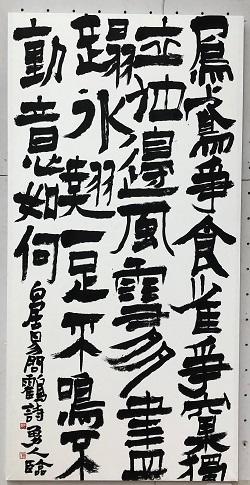 烏鳶爭食雀爭窠獨
立池邊風雪多盡日
蹋冰翹一足不鳴不
動意如何
白居易問鶴詩 勇人